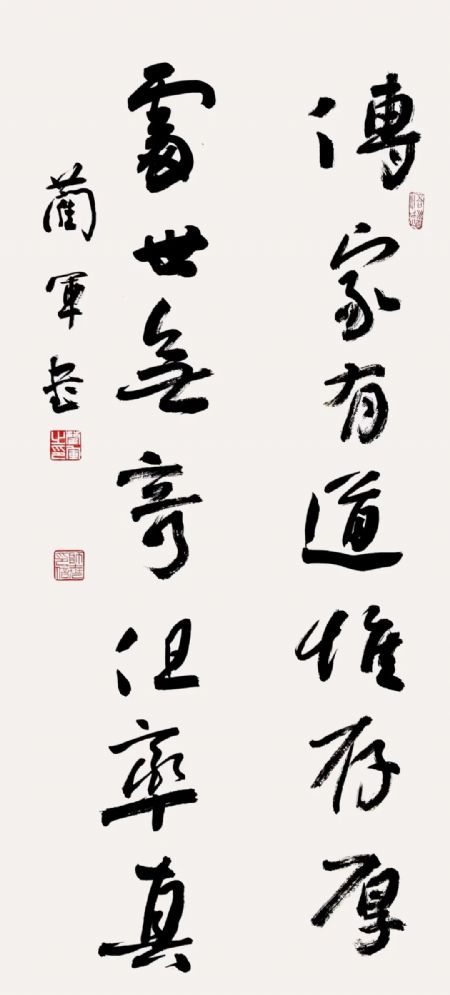 傳家有道惟存厚
處世無奇但率真
藺軍書